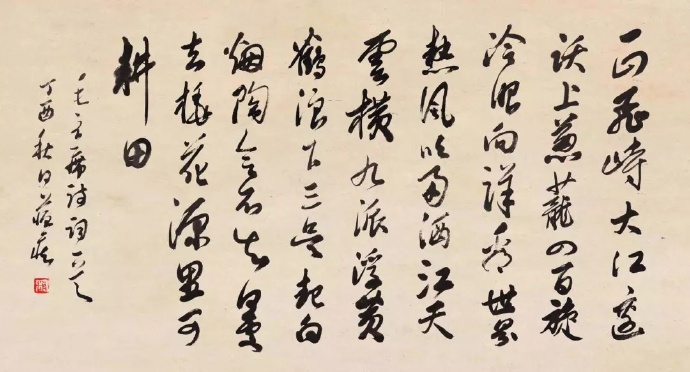 一山飞峙大江邊
跃上葱茏四百旋
冷眼向洋看世界
热风吹雨洒江天
雲橫九派浮黄
鶴浪下三吴起白
烟陶令不知何處
去桃花源里可
耕田
毛主席诗词一首
丁酉秋日